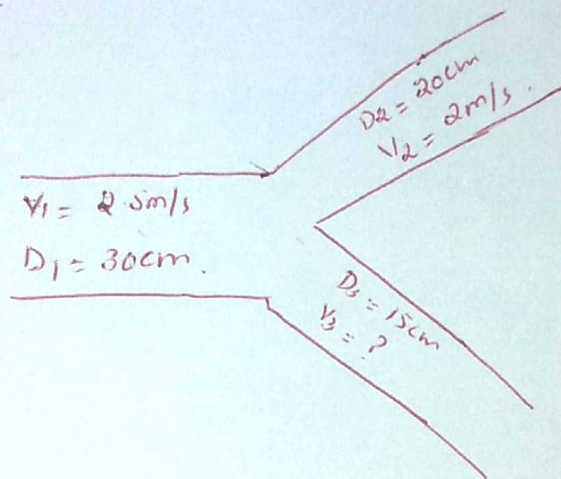 V1 = 2.5m/s
D1 = 30cm.
D2 = 20cm
V2 = 2m/s.
D3 = 15cm
V3 = ?